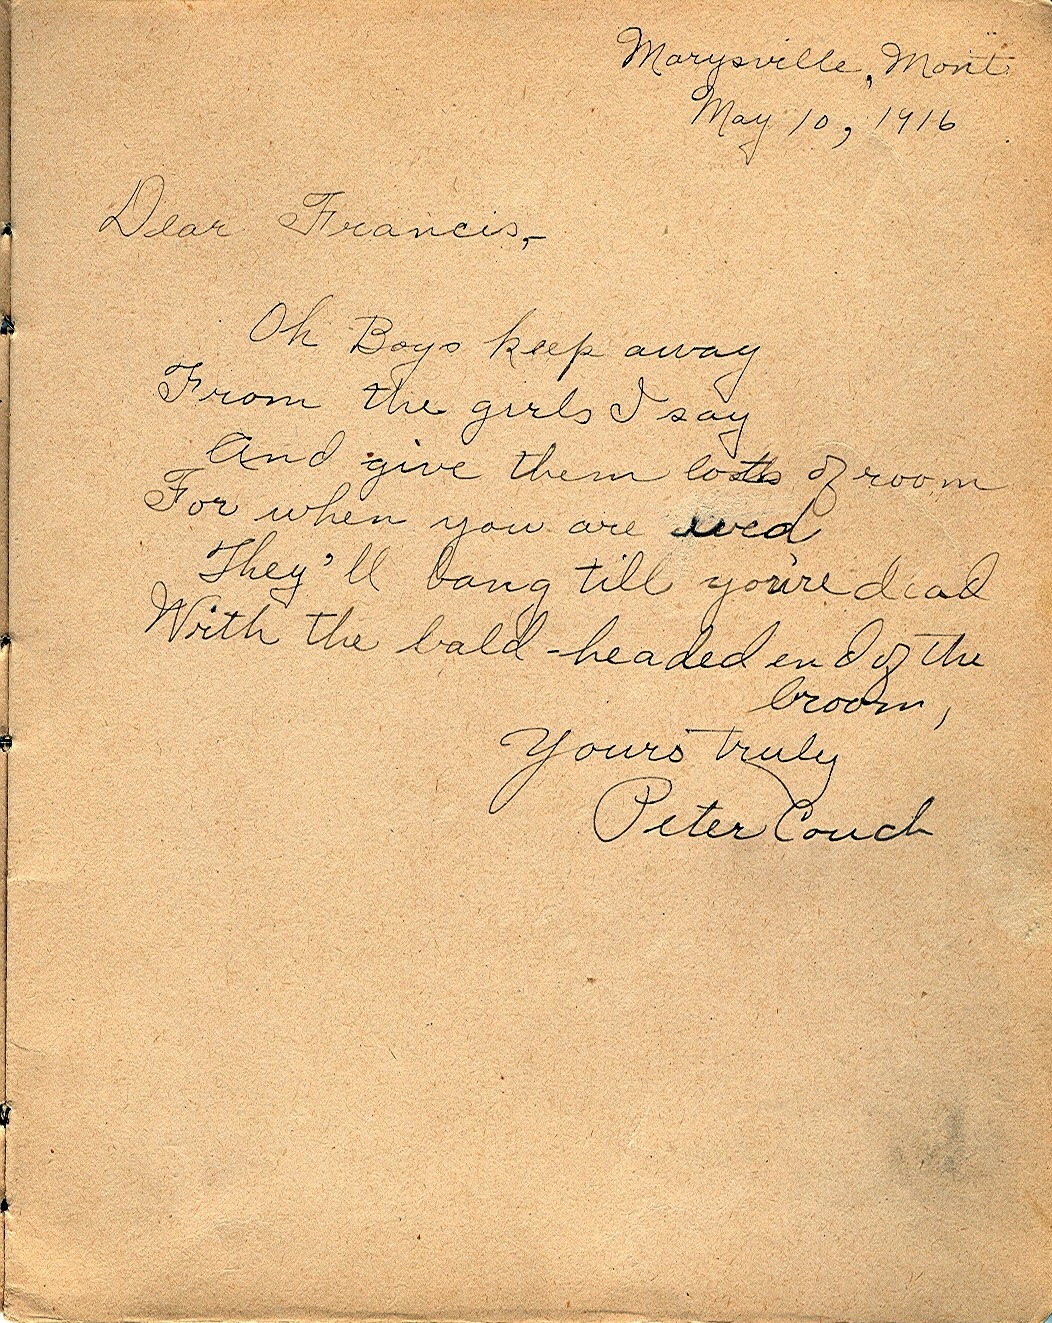 Marysville, Mont.
May 10, 1916
Dear Francis,-
Oh Boys keep away
From the girls I say
And give them lots of room
For when you are wed
They'll bang till you're dead
With the bald-headed end of the
broom,
Yours truly
Peter Couch